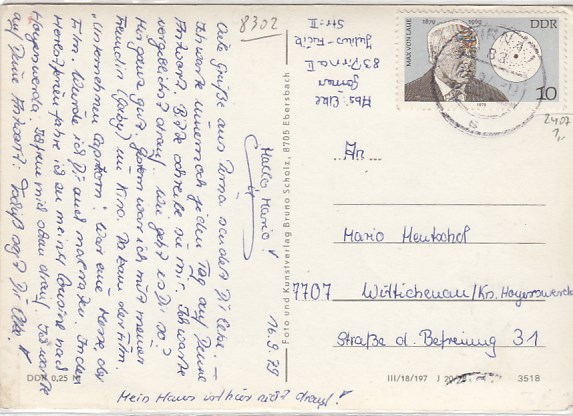 8302
Hallo Mario!
16.9.79
Viele Grüße aus Pirna sendet Dir Elke. –
Ich warte immer noch jeden Tag auf Deine
Antwort. Bitte schreibe mir. Ich warte
vergeblich drauf. Wie geht es Dir so?
Mir ganz gut. Gestern war ich mit meiner
Freundin (Gaby) im Kino. Da kam der Film
"Unternehmen Capricorn". War eine Menge, der
Film. Würde ich Dir auch mal raten. In den
Herbstferien fahre ich zu meiner Cousine nach
Hoyerswerda. Ich freu mich schon drauf. Ich warte
auf Deine Antwort! Tschüß sagt Dir Elke.
Mein Haus ist hier nicht drauf!
DDR 0,25 M
Foto und Kunstverlag Bruno Scholz, 8705 Ebersbach
Abs.: Elke
83 Pirna II
Str.: II
MAX VON LAUE
1879 1969
DDR
10
1979
2407
1,-
An
Mario Hentschel
7707 Wittichenau/Kr. Hoyerswerda
Straße d. Befreiung 31
III/18/197
3518